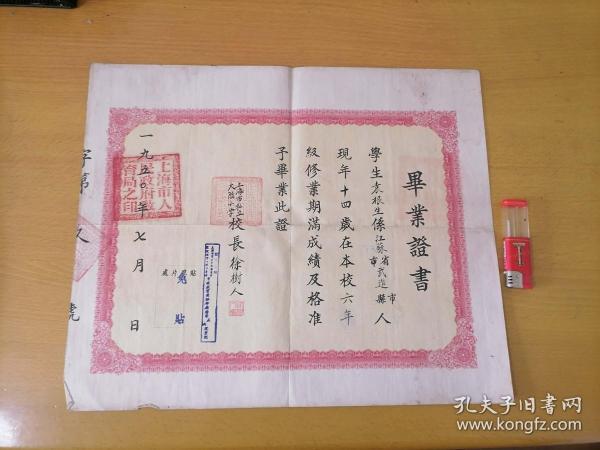 畢業證書
學生袁根生係江蘇省武進縣人
市
市
現年十四歲在本校六年
級修業期滿成績及格准
予畢業此證
校長徐樹人
上海市私立
大陸小學
一九五〇年七月　日
上海市人
民政府教
育局之印
貼片相處
免貼
字第
號
孔夫子旧书网
www.kongfz.com